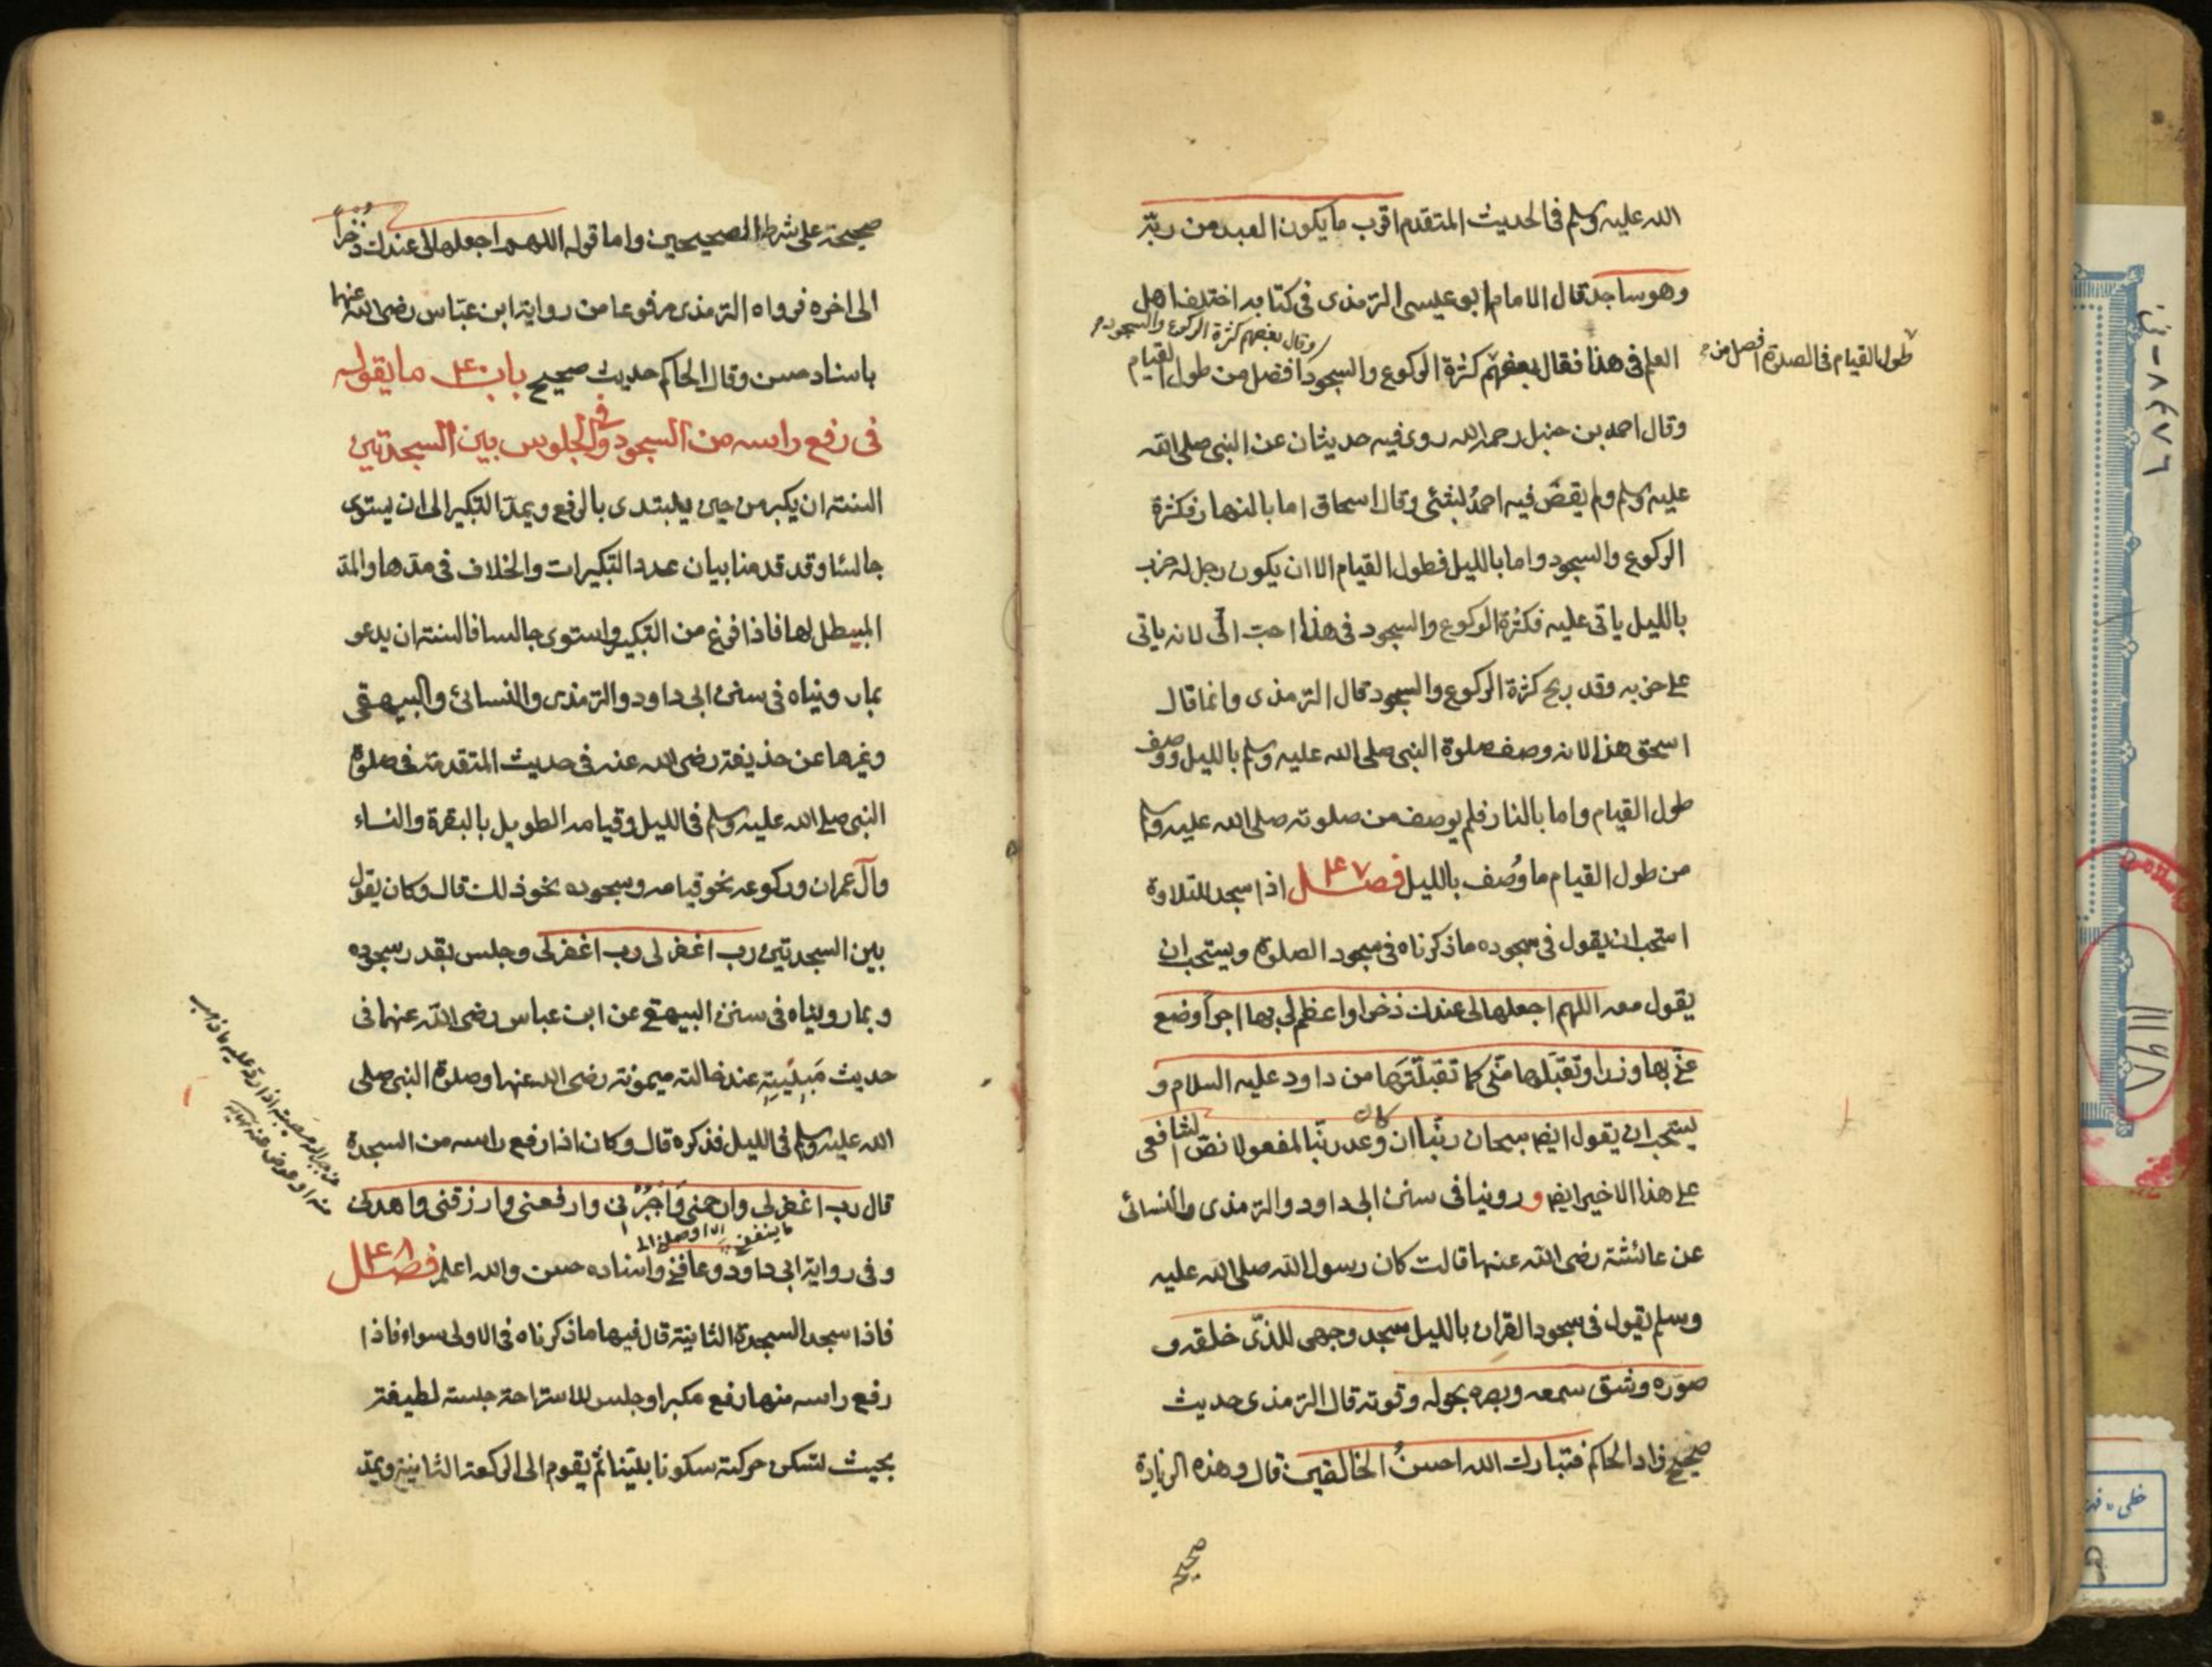 الله عليه وسلم فى الحديث المتقدم اقرب ما يكون العبد من ربّه
وهو ساجد قال الامام ابو عيسى الترمذى فى كتابه اختلف اهل
وقال بعضهم كثرة الركوع والسجود
العلم فى هذا فقال بعضهم كثرة الركوع والسجود افضل من طول القيام
طول القيام فى الصلوة افضل من
وقال احمد بن حنبل رحمه الله روى فيه حديثان عن النبى صلى الله
عليه وسلم ولم يقض فيه احمدُ بشئى وقال اسحاق اما بالنهار فكثرة
الركوع والسجود واما بالليل فطول القيام الا ان يكون رجل له حزب
بالليل ياتى عليه فكثرة الركوع والسجود فى هذا احبّ الىّ لانه ياتى
على حزبه وقد ربح كثرة الركوع والسجود قال الترمذى وانما قال
اسحق هذا لانه وصف صلوة النبى صلى الله عليه وسلم بالليل ووصف
طول القيام واما بالنار فلم يوصف من صلوته صلى الله عليه وسلم
من طول القيام ما وُصف بالليل فصل ۴۷ اذا سجد للتلاوة
استحب ان يقول فى سجوده ما ذكرناه فى سجود الصلوة ويستحب ان
يقول معه اللهم اجعلها لى عندك ذخرا واعظم لى بها اجرًا وضع
عنّى بها وزرا وتقبّلها منّى كما تقبلتها من داود عليه السلام و
يستحب ان يقول ايضا سبحان ربّنا ان كان وعد ربّنا لمفعولا نصّ الشافعى
على هذا الاخير ايضا وروينا فى سنن ابى داود والترمذى والنسائى
عن عائشة رضى الله عنها قالت كان رسول الله صلى الله عليه
وسلم يقول فى سجود القران بالليل سجد وجهى للذّى خلقه و
صوّره وشق سمعه وبصره بحوله وقوته قال الترمذى حديث
صحيح زاد الحاكم فتبارك الله احسنُ الخالقين قال وهذه الزيادة
صحيحة
صحيحة على شرط الصحيحين واما قوله اللهم اجعلها لى عندك ذُخرًا
الى اخره فرواه الترمذى مرفوعا من رواية ابن عبّاس رضى الله عنهما
باسناد حسن وقال الحاكم حديث صحيح باب ۴۰ ما يقوله
فى رفع راسه من السجود وفى الجلوس بين السجدتين
السنة ان يكبر من حين يبتدى بالرفع ويمدّ التكبير الى ان يستوى
جالسا وقد قدمنا بيان عدد التكبيرات والخلاف فى مدّها والمدّ
المبطل لها فاذا فرغ من التكبير واستوى جالسا فالسنة ان يدعو
بما رويناه فى سنن ابى داود والترمذى والنسائى والبيهقى
وغيرها عن حذيفة رضى الله عنه فى حديث المتقدمة فى صلوة
النبى صلى الله عليه وسلم فى الليل وقيامه الطويل بالبقرة والنساء
وآل عمران وركوعه نحو قيامه وسجوده نحو ذلك قال وكان يقول
بين السجدتين رب اغفر لى رب اغفر لى وجلس بقدر سجوده
وبما رويناه فى سنن البيهقى عن ابن عباس رضى الله عنهما فى
حديث مَبِيْتِهِ عند خالته ميمونة رضى الله عنها وصلوة النبى صلى
الله عليه وسلم فى الليل فذكره قال وكان اذا رفع راسه من السجدة
قال رب اغفر لى وارحمنى وَاجْبُرْ نى وارفعنى وارزقنى واهدنى
وفى رواية ابى داود وعافنى واسناده حسن والله اعلم فصل ۴۸
فاذا سجد السجدة الثانية قال فيها ما ذكرناه فى الاولى سواء فاذا
رفع راسه منها رفع مكبرا وجلس للاستراحة جلسة لطيفة
بحيث تسكن حركته سكونا بيّنا ثم يقوم الى الركعة الثانية ويمدّ